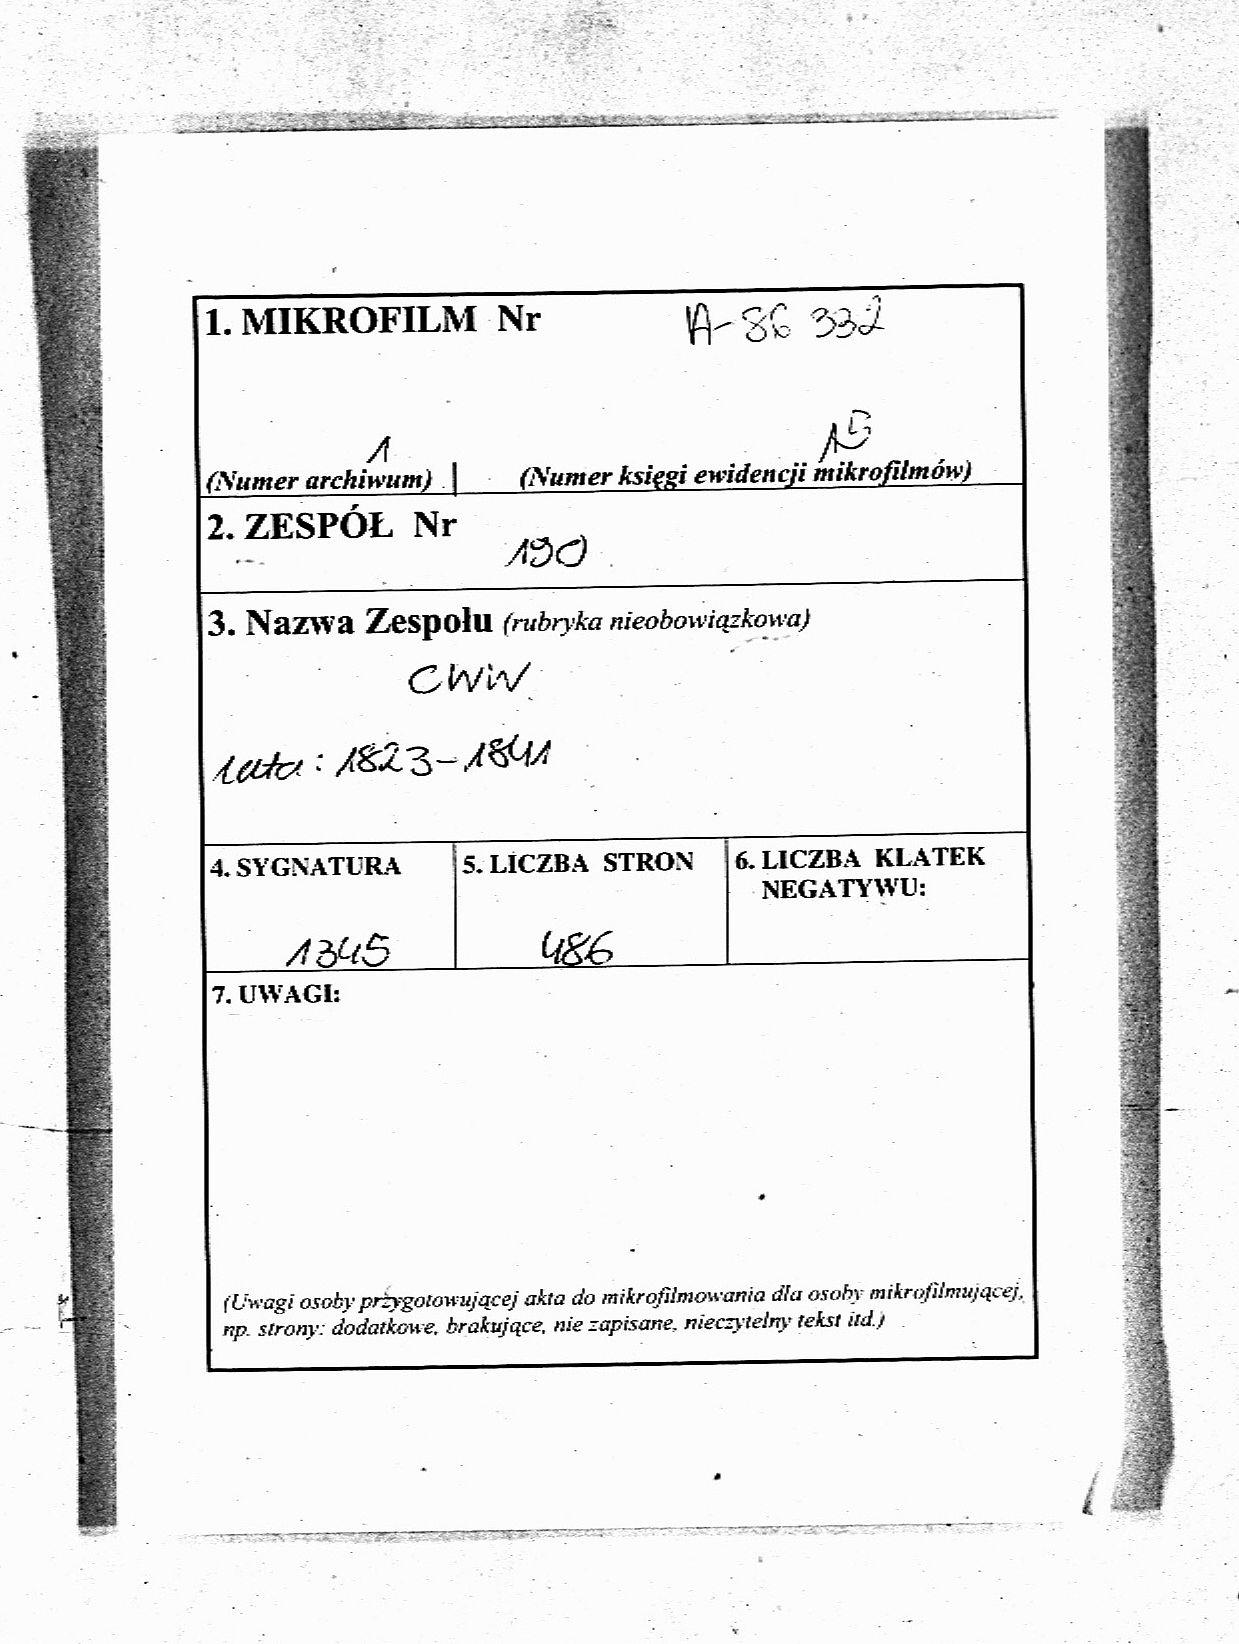 1. MIKROFILM Nr A-86 332
1 15
(Numer archiwum) (Numer księgi ewidencji mikrofilmów)
2. ZESPÓŁ Nr
190
3. Nazwa Zespołu (rubryka nieobowiązkowa)
CWW
lata: 1823-1841
4. SYGNATURA 5. LICZBA STRON 6. LICZBA KLATEK
NEGATYWU:
1345 486
7. UWAGI:
(Uwagi osoby przygotowującej akta do mikrofilmowania dla osoby mikrofilmującej,
np. strony: dodatkowe, brakujące, nie zapisane, nieczytelny tekst itd.)